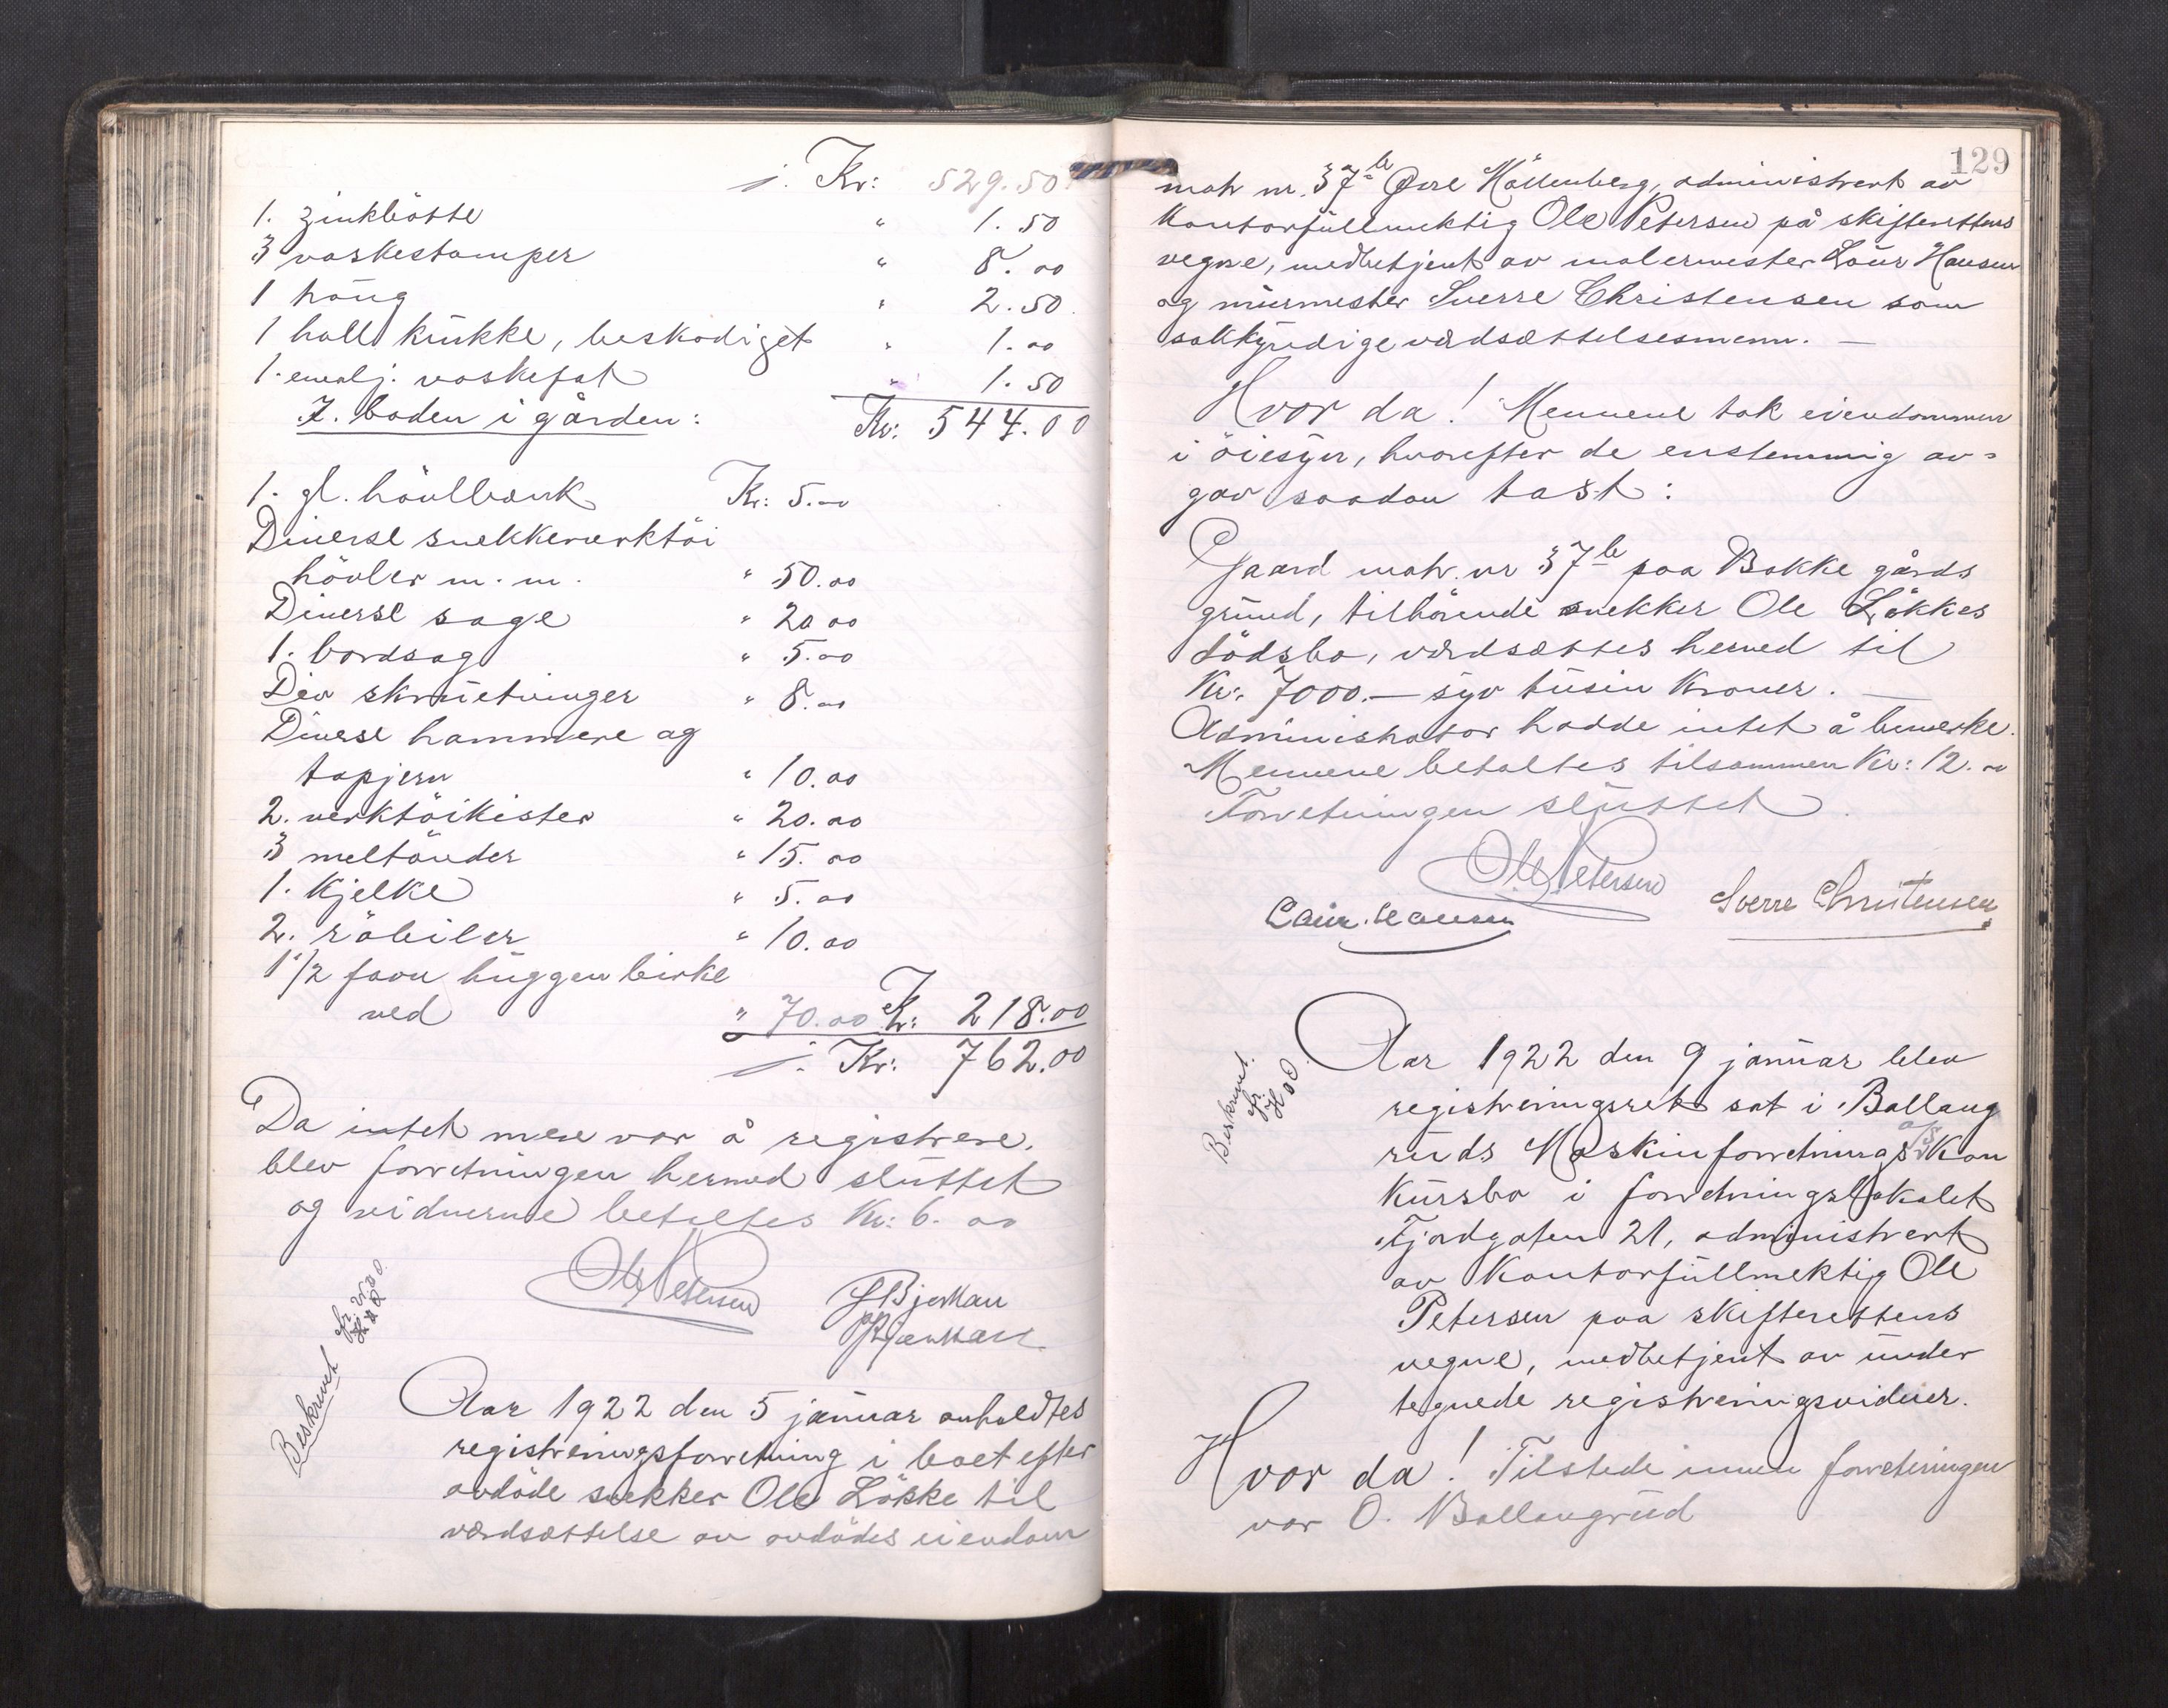 j. Kr: 529.50
1. zinkbötte " 1.50
3 vaskestamper " 8.00
1 haug " 2.50
1 hall krukke, beskadiget " 1.00
1. emalj. vaskefat " 1.50
I. boden i gården: Kr: 544.00
1. gl. hövlbænk Kr: 5.00
Diverse snekkerverktöi
hövler m. m. " 50.00
Diverse sage " 20 00
1. bordsag " 5.00
Div skruetvinger " 8.00
Diverse hammere og
tapjern " 10.00
2. verktöikister " 20.00
3 meltönder " 15.00
1. Kjelke " 5.00
2. råbiler " 10.00
1 1/2 favn huggen birke
ved " 70.00 Kr: 218.00
j. Kr: 762.00
Da intet mere var å registrere,
blev forretningen hermed sluttet
og vidnerne betaltes Kr: 6.00
Ole Petersen
Bjørkan
Beskrevet
Aar 1922 den 5 januar avholdtes
registreringsforretning i boet efter
avdöde snekker Ole Lökke til
værdsættelse av avdödes eiendom
129
matr nr. 37b Övre Möllenberg, administrert av
Kontorfullmektig Ole Petersen på skifterettens
vegne, medbetjent av malermester Laur Hansen
og murmester Sverre Christensen som
sakkyndige værdsættelsesmenn. —
Hvor da! Mennene tok eiendommen
i öiesyn, hvorefter de enstemmig av=
gav saadan takst:
Gaard matr. nr 37b paa Bakke gårds
grund, tilhörende snekker Ole Lökkes
dödsbo, værdsættes herved til
Kr: 7000.— syv tusin Kroner. —
Administrator hadde intet å bemerke.
Mennene betaltes tilsammen Kr: 12.00
Forretningen sluttet.
Ole Petersen
Laur. Hansen Sverre Christensen
Beskrevet.
Aar 1922 den 9 januar blev
registreringsrett sat i Ballang
ruds Maskinforretning A/S Kon
kursbo i forretningslokalet
Fjordgaten 21, administrert
av Kontorfullmektig Ole
Petersen paa skifterettens
vegne, medbetjent av under
tegnede registreringsvidner.
Hvor da! Tilstede under forretningen
var O. Ballangrud